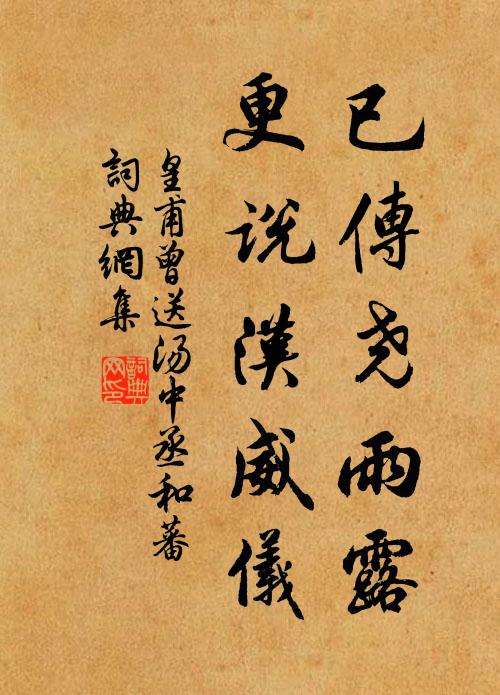 已傳尧雨露
更説漢威儀
皇甫曾送汤中丞和蕃
詞典網集
詞典
网印